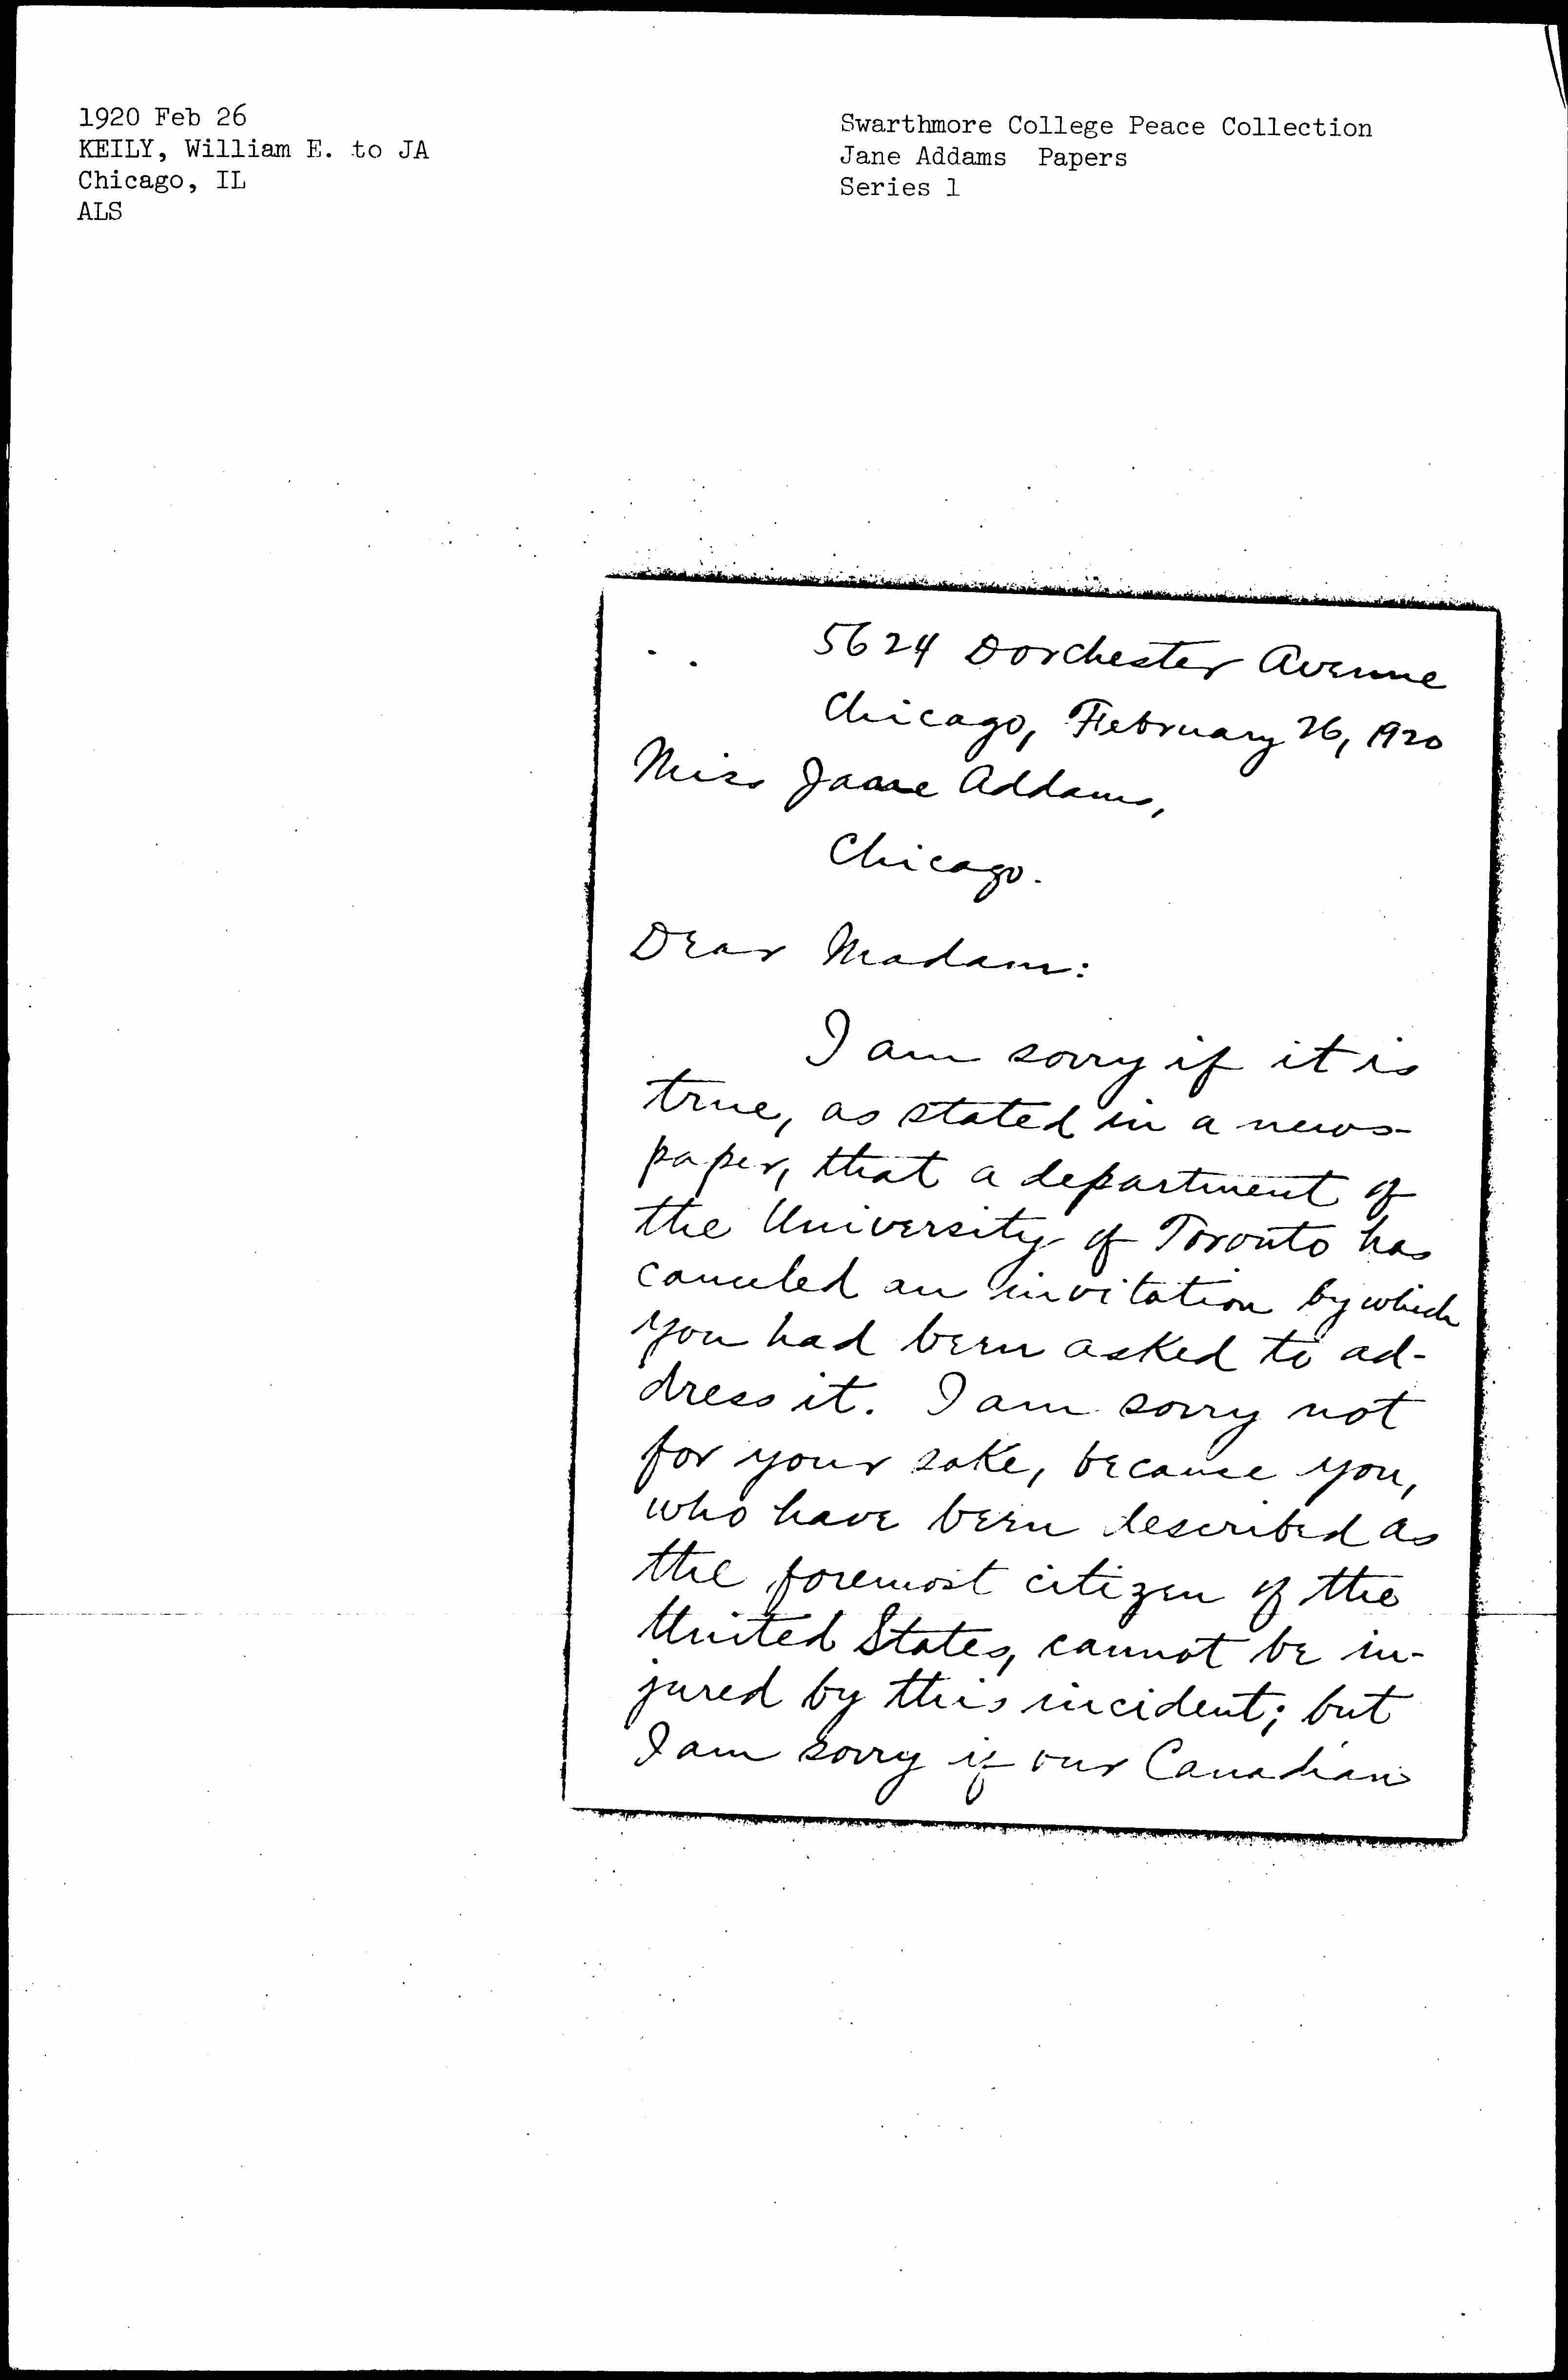 1920 Feb 26
KEILY, William E. to JA
Chicago, IL
ALS
Swarthmore College Peace Collection
Jane Addams Papers
Series 1
5624 Dorchester Avenue
Chicago, February 26, 1920
Miss Jane Addams,
Chicago.
Dear Madam:
I am sorry if it is
true, as stated in a news-
paper, that a department of
the University of Toronto has
canceled an invitation by which
you had been asked to ad-
dress it. I am sorry not
for your sake, because you,
who have been described as
the foremost citizen of the
United States, cannot be in-
jured by this incident; but
I am sorry if our Canadian